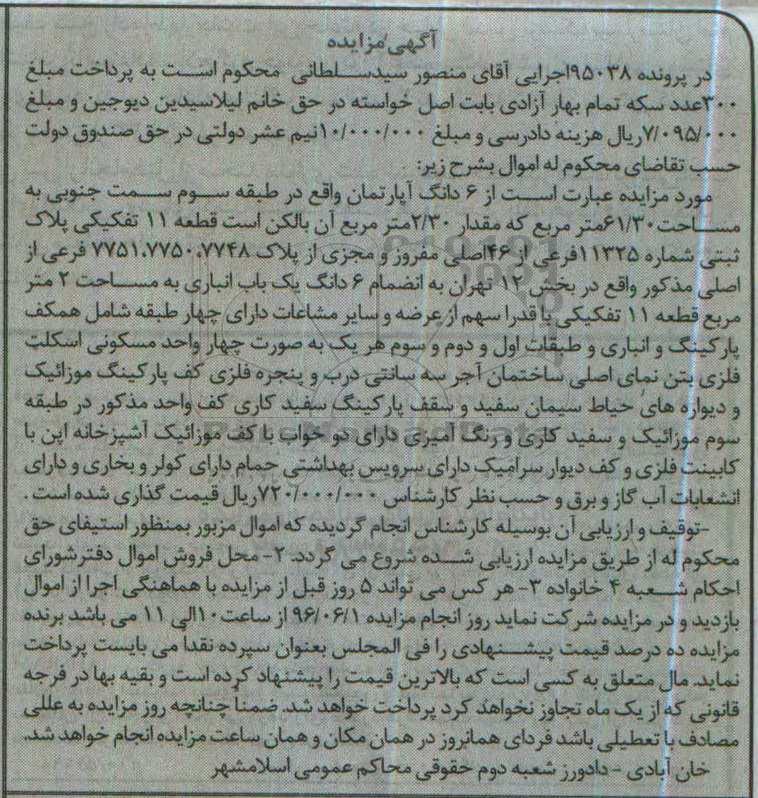 آگهی مزایده
در پرونده ۹۵۰۳۸اجرایی آقای منصور سیدسلطانی محکوم است به پرداخت مبلغ
۳۰۰عدد سکه تمام بهار آزادی بابت اصل خواسته در حق خانم لیلاسیدین دیوجین و مبلغ
۷/۰۹۵/۰۰۰ریال هزینه دادرسی و مبلغ ۱۰/۰۰۰/۰۰۰نیم عشر دولتی در حق صندوق دولت
حسب تقاضای محکوم له اموال بشرح زیر:
مورد مزایده عبارت است از ۶ دانگ آپارتمان واقع در طبقه سوم سمت جنوبی به
مساحت۶۱/۳۰متر مربع که مقدار ۲/۳۰متر مربع آن بالکن است قطعه ۱۱ تفکیکی پلاک
ثبتی شماره ۱۱۳۲۵فرعی از ۴۶اصلی مفروز و مجزی از پلاک ۷۷۴۸،۷۷۵۰،۷۷۵۱ فرعی از
اصلی مذکور واقع در بخش ۱۲ تهران به انضمام ۶ دانگ یک باب انباری به مساحت ۲ متر
مربع قطعه ۱۱ تفکیکی با قدرا سهم از عرضه و سایر مشاعات دارای چهار طبقه شامل همکف
پارکینگ و انباری و طبقات اول و دوم و سوم هر یک به صورت چهار واحد مسکونی اسکلت
فلزی بتن نمای اصلی ساختمان آجر سه سانتی درب و پنجره فلزی کف پارکینگ موزائیک
و دیواره های حیاط سیمان سفید و سقف پارکینگ سفید کاری کف واحد مذکور در طبقه
سوم موزائیک و سفید کاری و رنگ آمیزی دارای دو خواب با کف موزائیک آشپزخانه اپن با
کابینت فلزی و کف دیوار سرامیک دارای سرویس بهداشتی حمام دارای کولر و بخاری و دارای
انشعابات آب گاز و برق و حسب نظر کارشناس ۷۲۰/۰۰۰/۰۰۰ریال قیمت گذاری شده است .
-توقیف و ارزیابی آن بوسیله کارشناس انجام گردیده که اموال مزبور بمنظور استیفای حق
محکوم له از طریق مزایده ارزیابی شده شروع می گردد. ۲- محل فروش اموال دفترشورای
احکام شعبه ۴ خانواده ۳- هر کس می تواند ۵ روز قبل از مزایده با هماهنگی اجرا از اموال
بازدید و در مزایده شرکت نماید روز انجام مزایده ۹۶/۰۶/۱ از ساعت۱۰الی ۱۱ می باشد برنده
مزایده ده درصد قیمت پیشنهادی را فی المجلس بعنوان سپرده نقدا می بایست پرداخت
نماید. مال متعلق به کسی است که بالاترین قیمت را پیشنهاد کرده است و بقیه بها در فرجه
قانونی که از یک ماه تجاوز نخواهد کرد پرداخت خواهد شد. ضمناً چنانچه روز مزایده به عللی
مصادف با تعطیلی باشد فردای همانروز در همان مکان و همان ساعت مزایده انجام خواهد شد.
خان آبادی - دادورز شعبه دوم حقوقی محاکم عمومی اسلامشهر